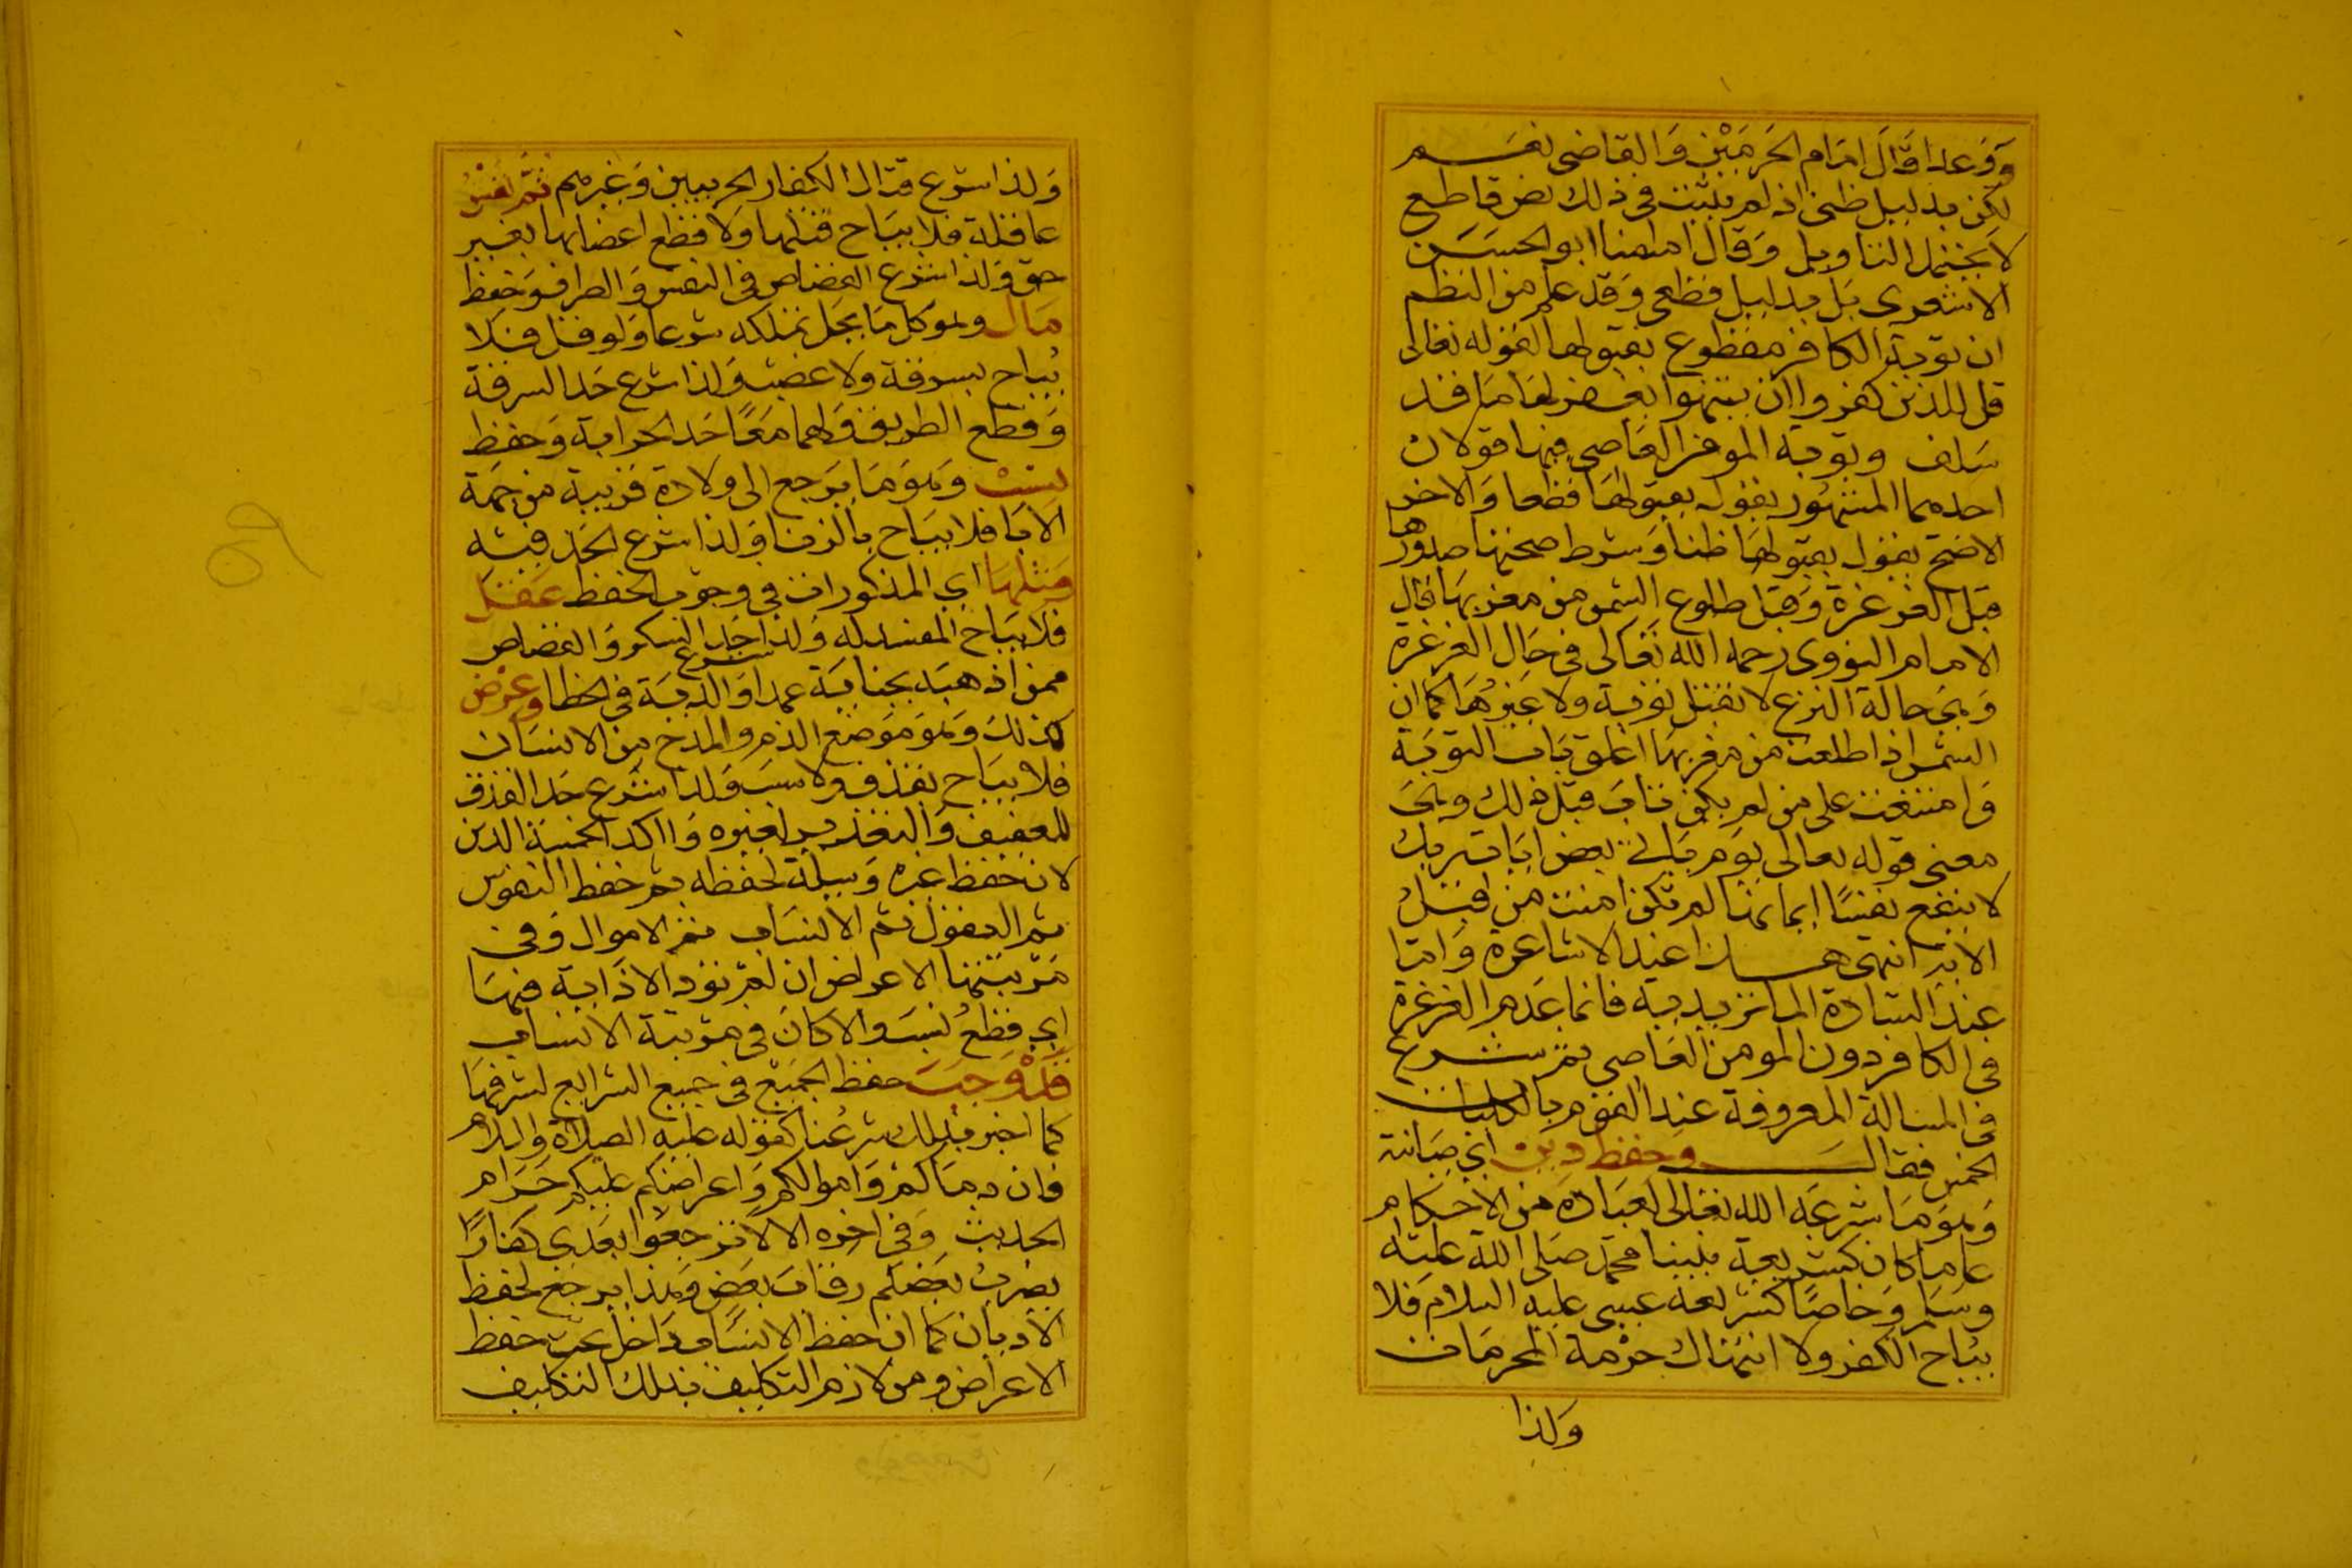 وفرعا قال امام الحرمين والقاضى نعم
لكن بدليل ظنى اذ لم يثبت فى ذلك نص قاطع
لا يحتمل التاويل وقال امامنا ابو الحسن
الاشعرى بل بدليل قطعى وقد علم من النظم
ان توبة الكافر مقطوع بقبولها لقوله تعالى
قل للذين كفروا ان ينتهوا يغفر لهم ما قد
سلف وتوبة المومن العاصي فيها قولان
احدهما المشهور يقول بقبولها قطعا والاخر
الاصح يقول بقبولها ظنا وشرط صحتها صدورها
قبل الغرغرة وقبل طلوع الشمس من مغربها قال
الامام النووى رحمه الله تعالى فى حال الغرغرة
وهى حالة النزع لا تقبل توبة ولا غيرها كما ان
الشمس اذا طلعت من مغربها اغلق باب التوبة
وامتنعت على من لم يكن تاب قبل ذلك وهى
معنى قوله تعالى يوم ياتي بعض ايات ربك
لا ينفع نفسا ايمانها لم تكن امنت من قبل
الاية انتهى هذا عند الاشاعرة واما
عند السادة الماتريدية فانما عدم الغرغرة
فى الكافر دون المومن العاصى ثم شرع
فى المسالة المعروفة عند القوم بالكليات
الخمس فقال وحفظ دين اي صيانته
وهو ما شرعه الله تعالى لعباده من الاحكام
عاما كان كشريعة نبينا محمد صلى الله عليه
وسلم وخاصا كشريعة عيسى عليه السلام فلا
يباح الكفر ولا انتهاك حرمة المحرمات
ولذا
ولذا شرع قتال الكفار الحربيين وغيرهم ثم نفس
عاقلة فلا يباح قتلها ولا قطع اعضائها بغير
حق ولذا شرع القصاص فى النفس والطرف وحفظ
مال وهو كل ما يحل تملكه شرعا ولو قل فلا
يباح بسرقة ولا غصب ولذا شرع حد السرقة
وقطع الطريق ولهما معا حد الحرابة وحفظ
نسب وهو ما يرجع الى ولادة قريبة من جهة
الابا فلا يباح بالزنا ولذا شرع الحد فيه
ومثلها اي المذكورات فى وجوب الحفظ عقل
فلا يباح المفسد له ولذا شرع حد السكر والقصاص
ممن اذهبه بجناية عمدا والدية فى الخطا وعرض
كذلك وهو موضع الذم والمدح من الانسان
فلا يباح بقذف ولا سب ولذا شرع حد القذف
للعفيف والتعذير لغيره واكد الخمسة الدين
لان حفظ غيره وسيلة لحفظه ثم حفظ النفوس
ثم العقول ثم الانساب ثم الاموال وفى
مرتبتها الاعراض ان لم تود الاذاية فيها
اي قطع نسب والا كان فى مرتبة الانساب
قد وجب حفظ الجميع فى جميع الشرايع لشرفها
كما اخبر بذلك شرعنا كقوله عليه الصلاة والسلام
فان دماكم واموالكم واعراضكم عليكم حرام
الحديث وفى اخره الا لا ترجعوا بعدي كفارا
يضرب بعضكم رقاب بعض وهذا يرجع لحفظ
الاديان كما ان حفظ الانساب داخل تحت حفظ
الاعراض ومن لازم التكليف بذلك التكليف